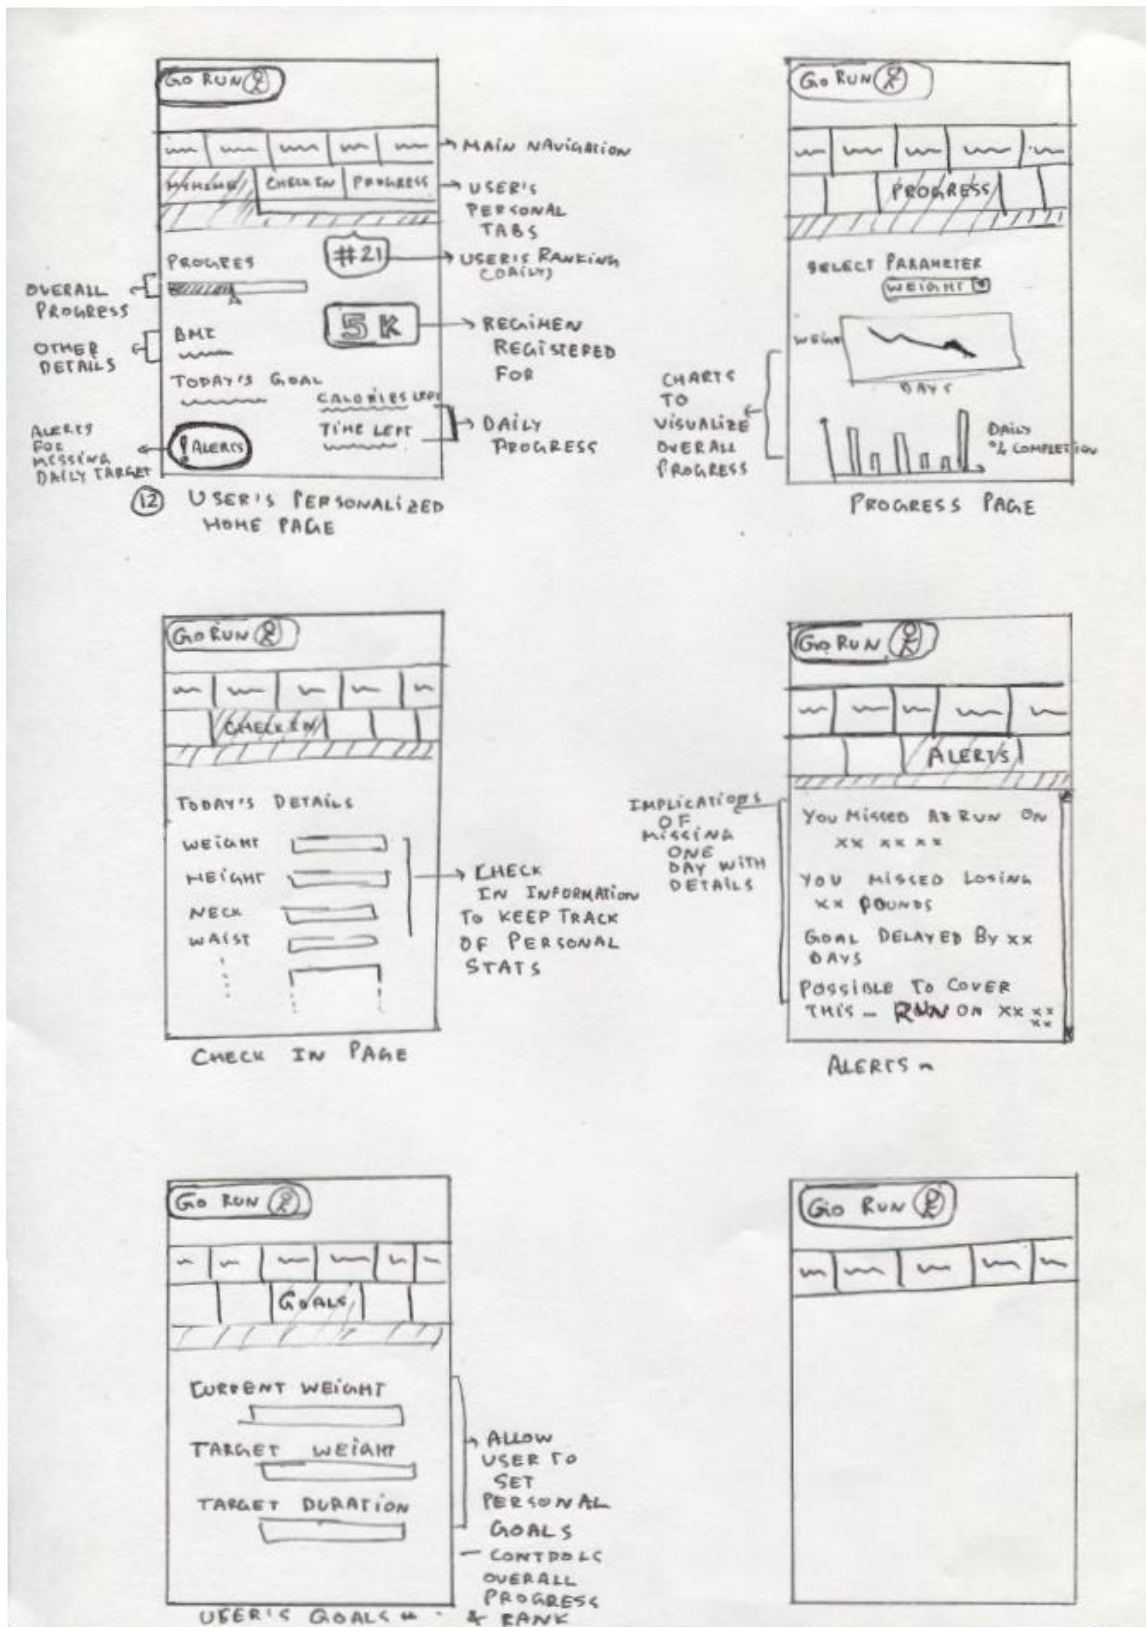 GO RUN
MAIN NAVIGATION
MYHOME CHECK IN PROGRESS
USER'S
PERSONAL
TABS
#21
USER'S RANKING
(DAILY)
PROGRES
OVERALL
PROGRESS
5K
REGIMEN
REGISTERED
FOR
BMI
OTHER
DETAILS
TODAY'S GOAL
CALORIES LEFT
TIME LEFT
DAILY
PROGRESS
ALERTS
FOR
MISSING
DAILY TARGET
! ALERTS
12 USER'S PERSONALIZED
HOME PAGE
GO RUN
PROGRESS
SELECT PARAMETER
WEIGHT
WEIGHT
DAYS
CHARTS
TO
VISUALIZE
OVERALL
PROGRESS
DAILY
% COMPLETION
PROGRESS PAGE
GO RUN
CHECK IN
TODAY'S DETAILS
WEIGHT
HEIGHT
NECK
WAIST
CHECK
IN INFORMATION
TO KEEP TRACK
OF PERSONAL
STATS
CHECK IN PAGE
GO RUN
ALERTS
IMPLICATIONS
OF
MISSING
ONE
DAY WITH
DETAILS
YOU MISSED RUN ON
XX XX XX
YOU MISSED LOSING
XX POUNDS
GOAL DELAYED BY XX
DAYS
POSSIBLE TO COVER
THIS – RUN ON XX XX
XX
ALERTS
GO RUN
GOALS
CURRENT WEIGHT
TARGET WEIGHT
TARGET DURATION
ALLOW
USER TO
SET
PERSONAL
GOALS
– CONTROLS
OVERALL
PROGRESS
& RANK
USER'S GOALS
GO RUN